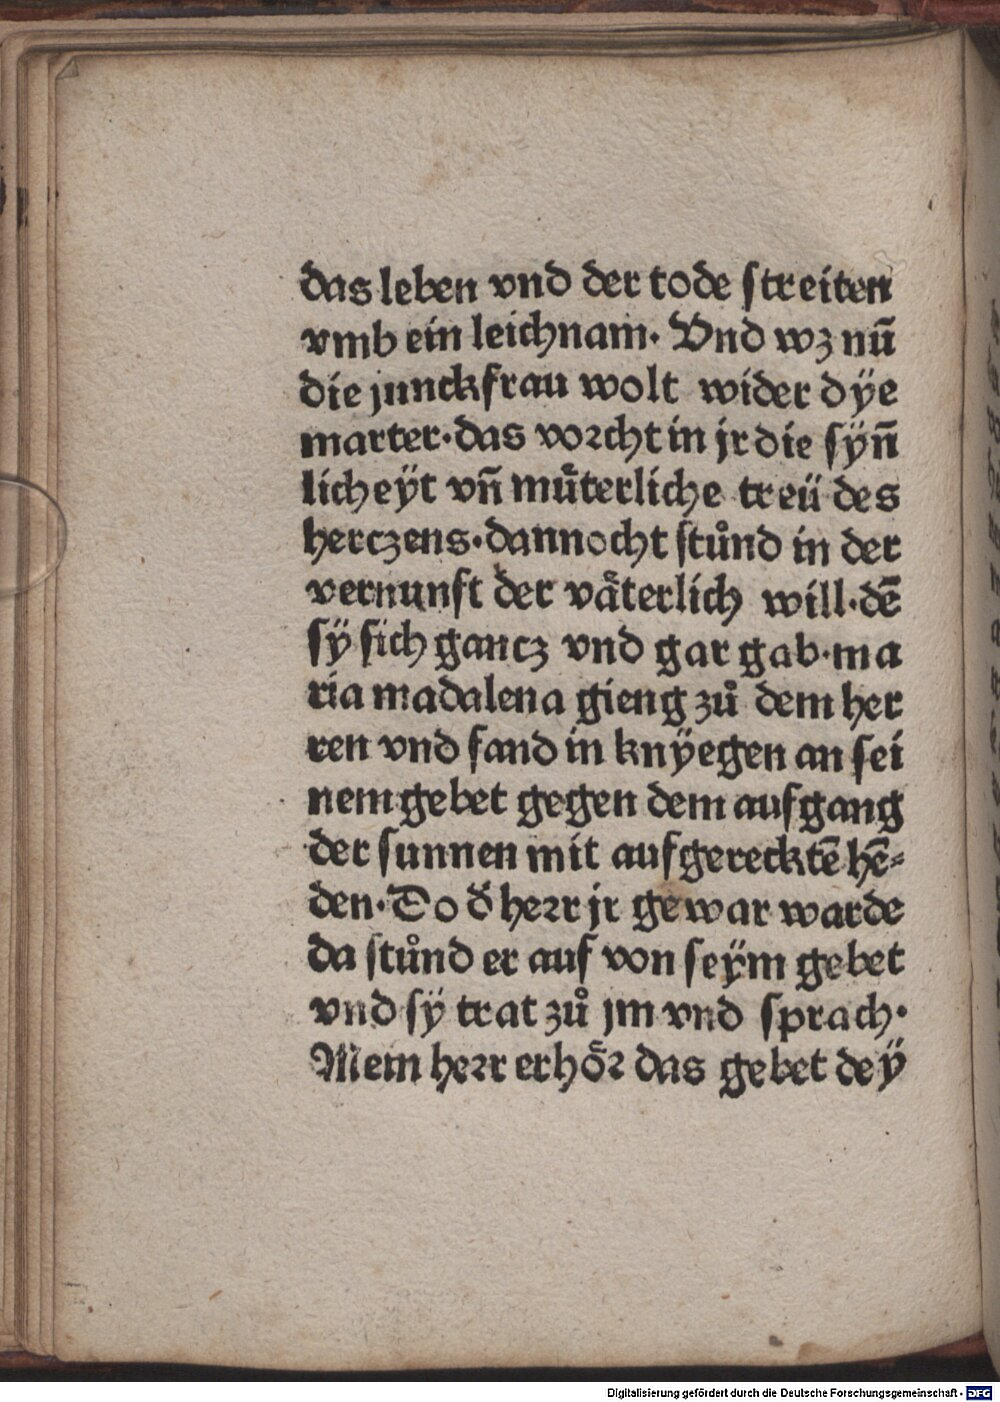 das leben vnd der tode streiten
vmb ein leichnam· Vnd wz nū
die junckfrau wolt wider dÿe
marter·das vorcht in jr die sÿn̄
licheÿt vn̄ mūterliche treü des
herczens·dannocht stůnd in der
vernunft der väterlich will·dē
sÿ sich gancz vnd gar gab·ma
ria madalena gieng zů dem her
ren vnd fand in knÿegen an sei
nem gebet gegen dem aufgang
der sunnen mit aufgerecktē hē⸗
den·Do d̄ herr jr gewar warde
da stůnd er auf von seÿm gebet
vnd sÿ trat zů jm vnd sprach·
Mein herr erhör das gebet deÿ
Digitalisierung gefördert durch die Deutsche Forschungsgemeinschaft - DFG